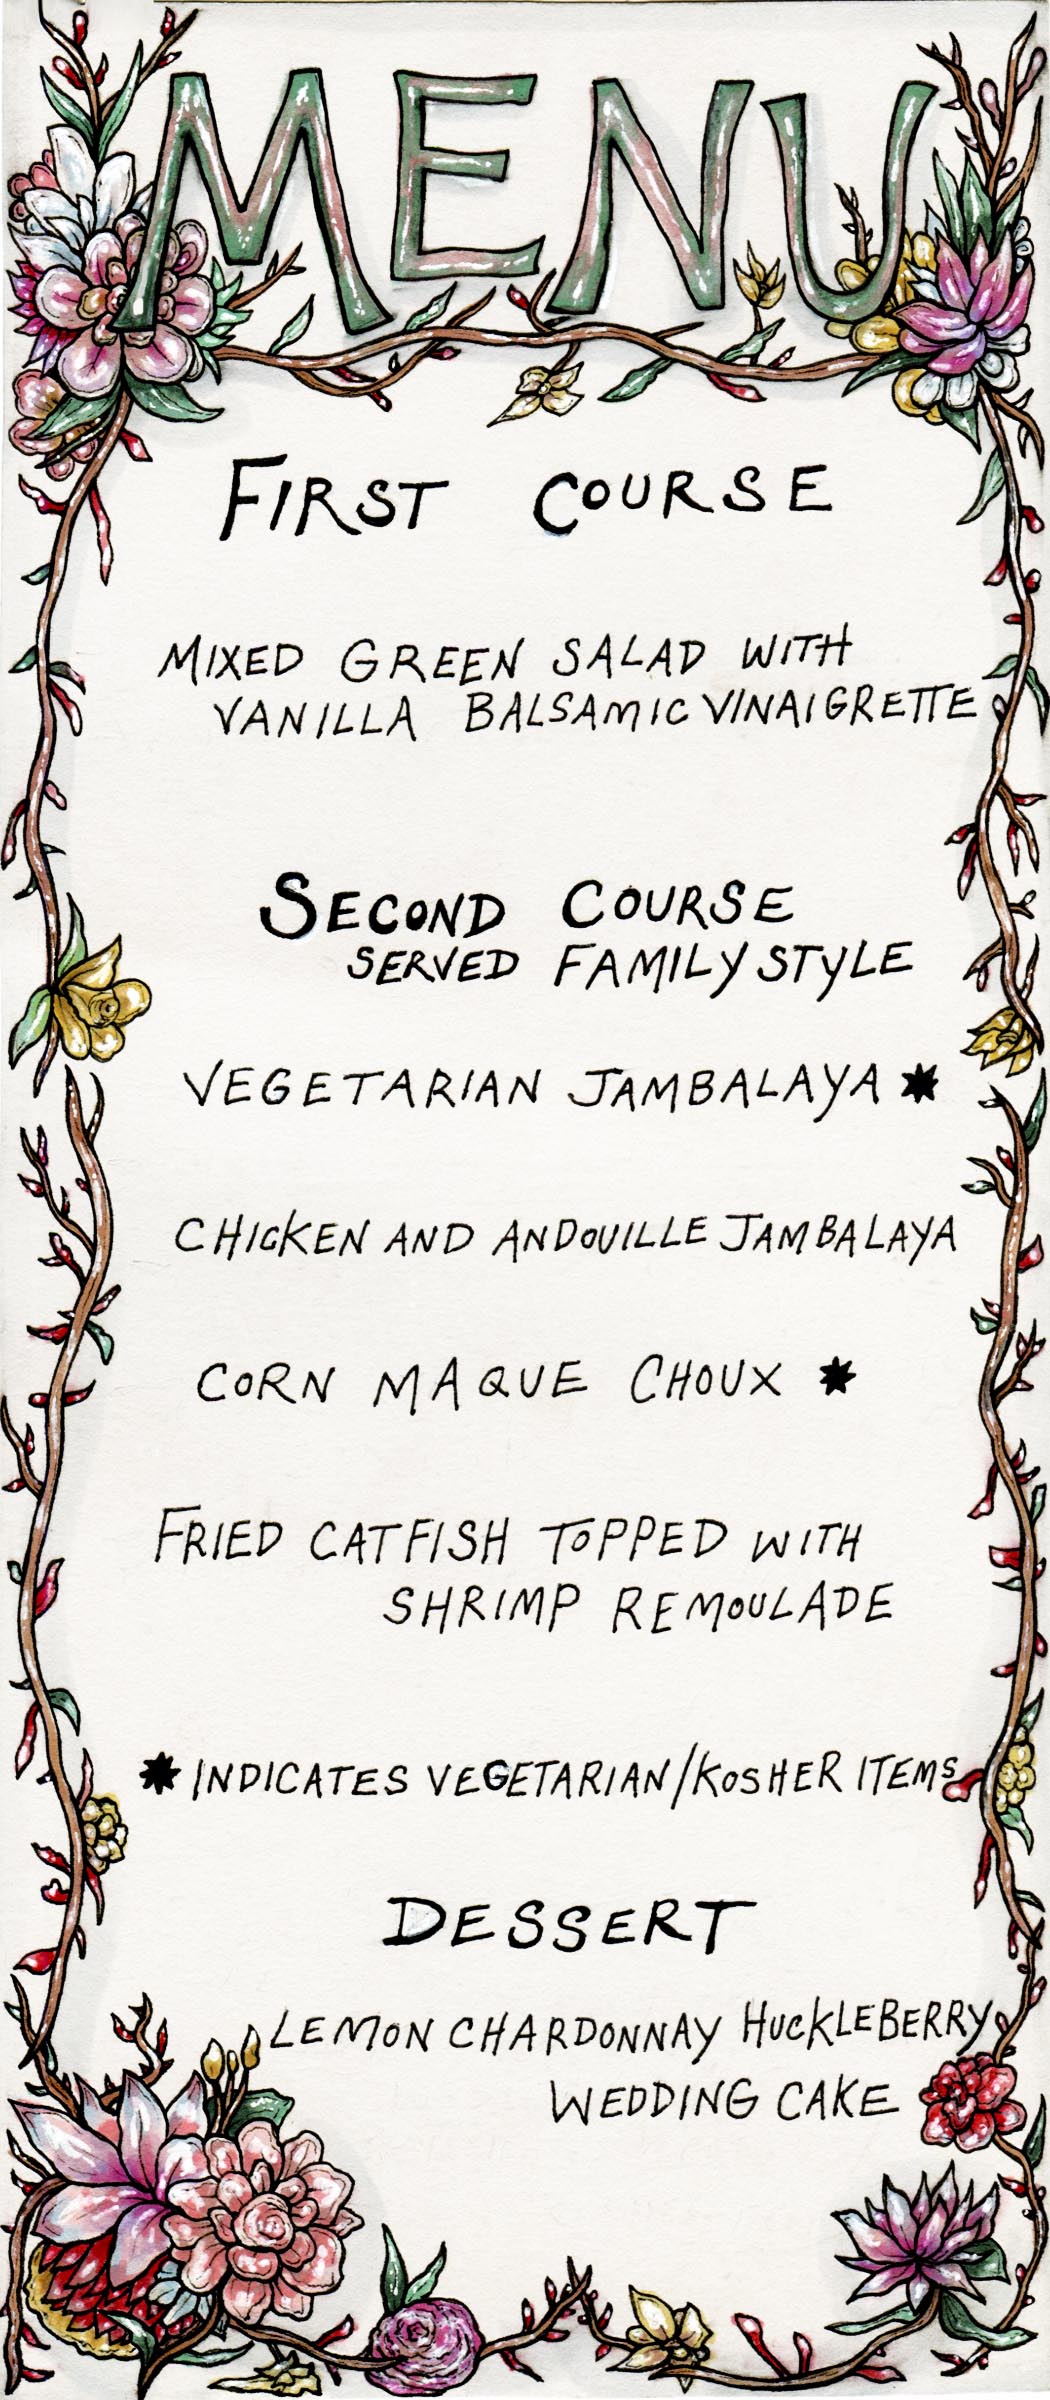 MENU
FIRST COURSE
MIXED GREEN SALAD WITH
VANILLA BALSAMIC VINAIGRETTE
SECOND COURSE
SERVED FAMILY STYLE
VEGETARIAN JAMBALAYA *
CHICKEN AND ANDOUILLE JAMBALAYA
CORN MAQUE CHOUX *
FRIED CATFISH TOPPED WITH
SHRIMP REMOULADE
* INDICATES VEGETARIAN/KOSHER ITEMS
DESSERT
LEMON CHARDONNAY HUCKLEBERRY
WEDDING CAKE